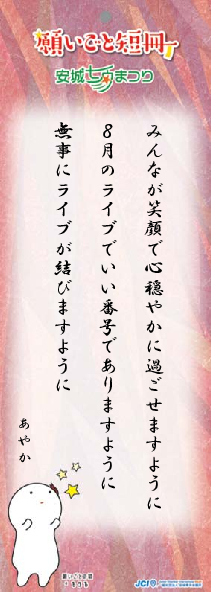 願いごと短冊
安城七夕まつり
みんなが笑顔で心穏やかに過ごせますように
8月のライブでいい番号でありますように
無事にライブが結びますように
あやか
願いごとの国
JCI